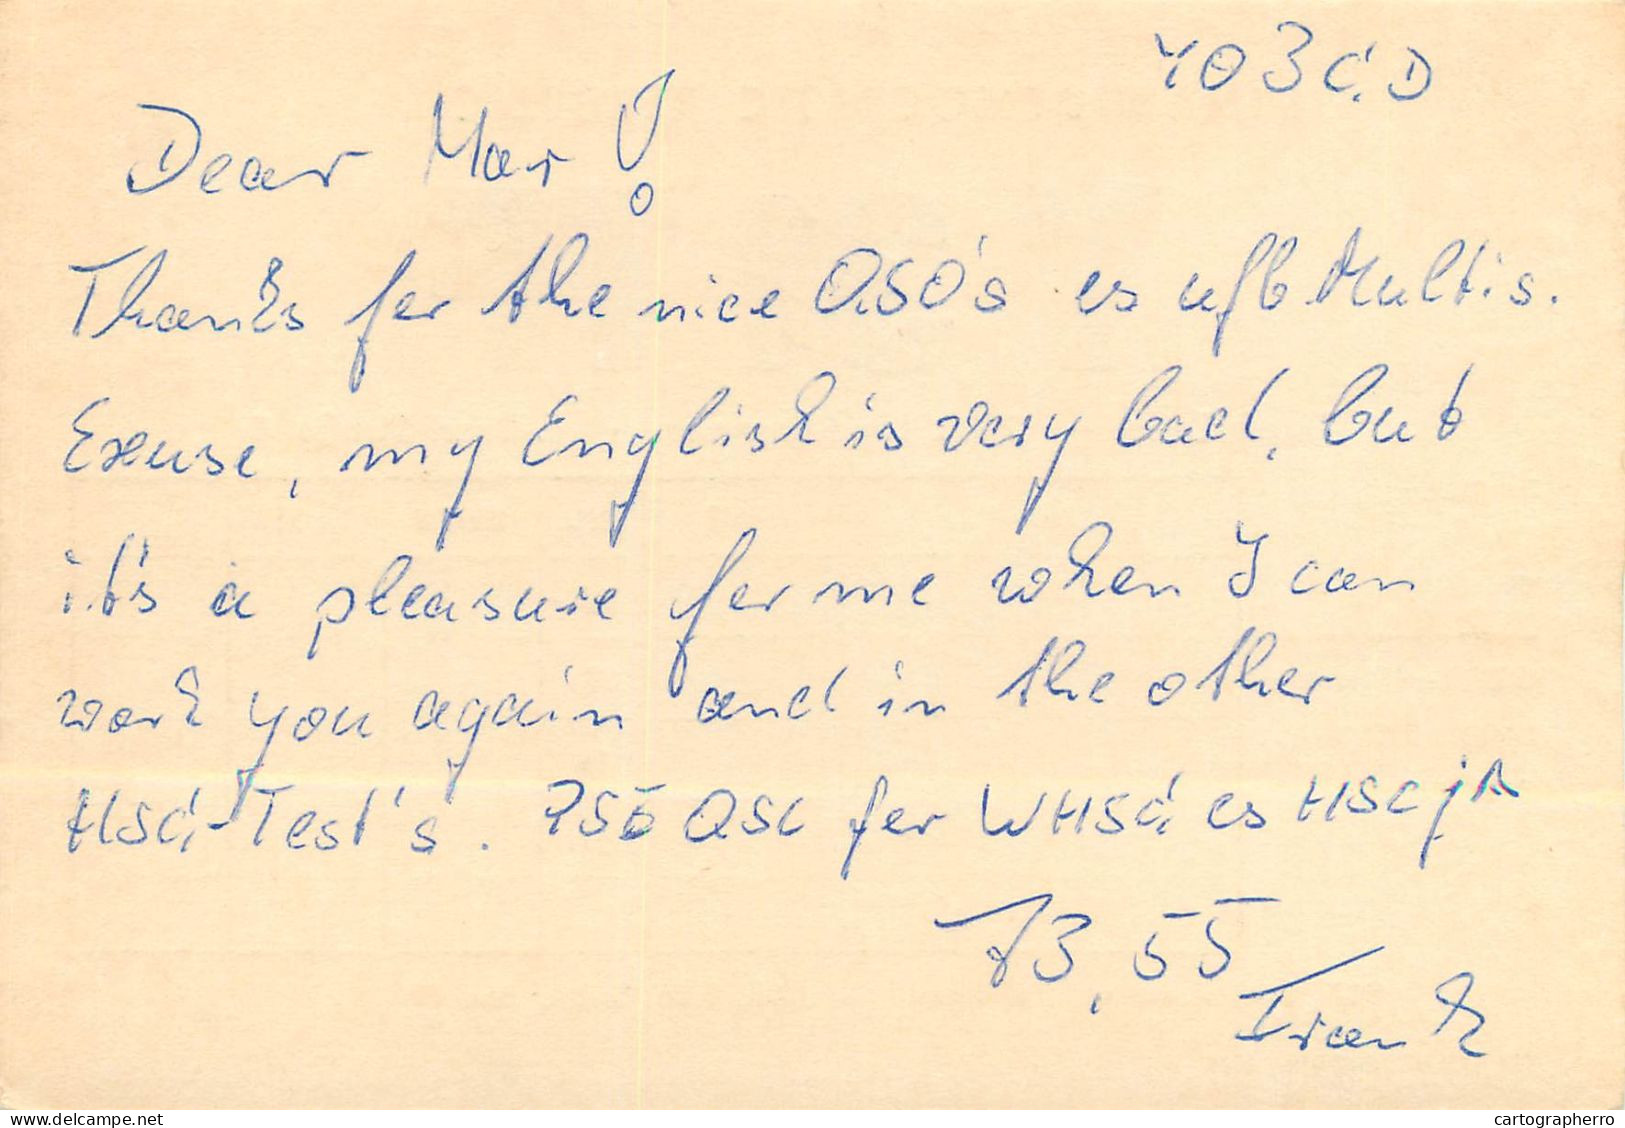 YO3CD
Dear Mar !
Thanks for the nice QSO's es ufb Multis.
Excuse, my English is very bad, but
it's a pleasure for me when I can
work you again and in the other
HSC-Test's. PSE QSL for WHSC es HSC jr
73, 55
Frank
www.delcampe.net
cartographerro